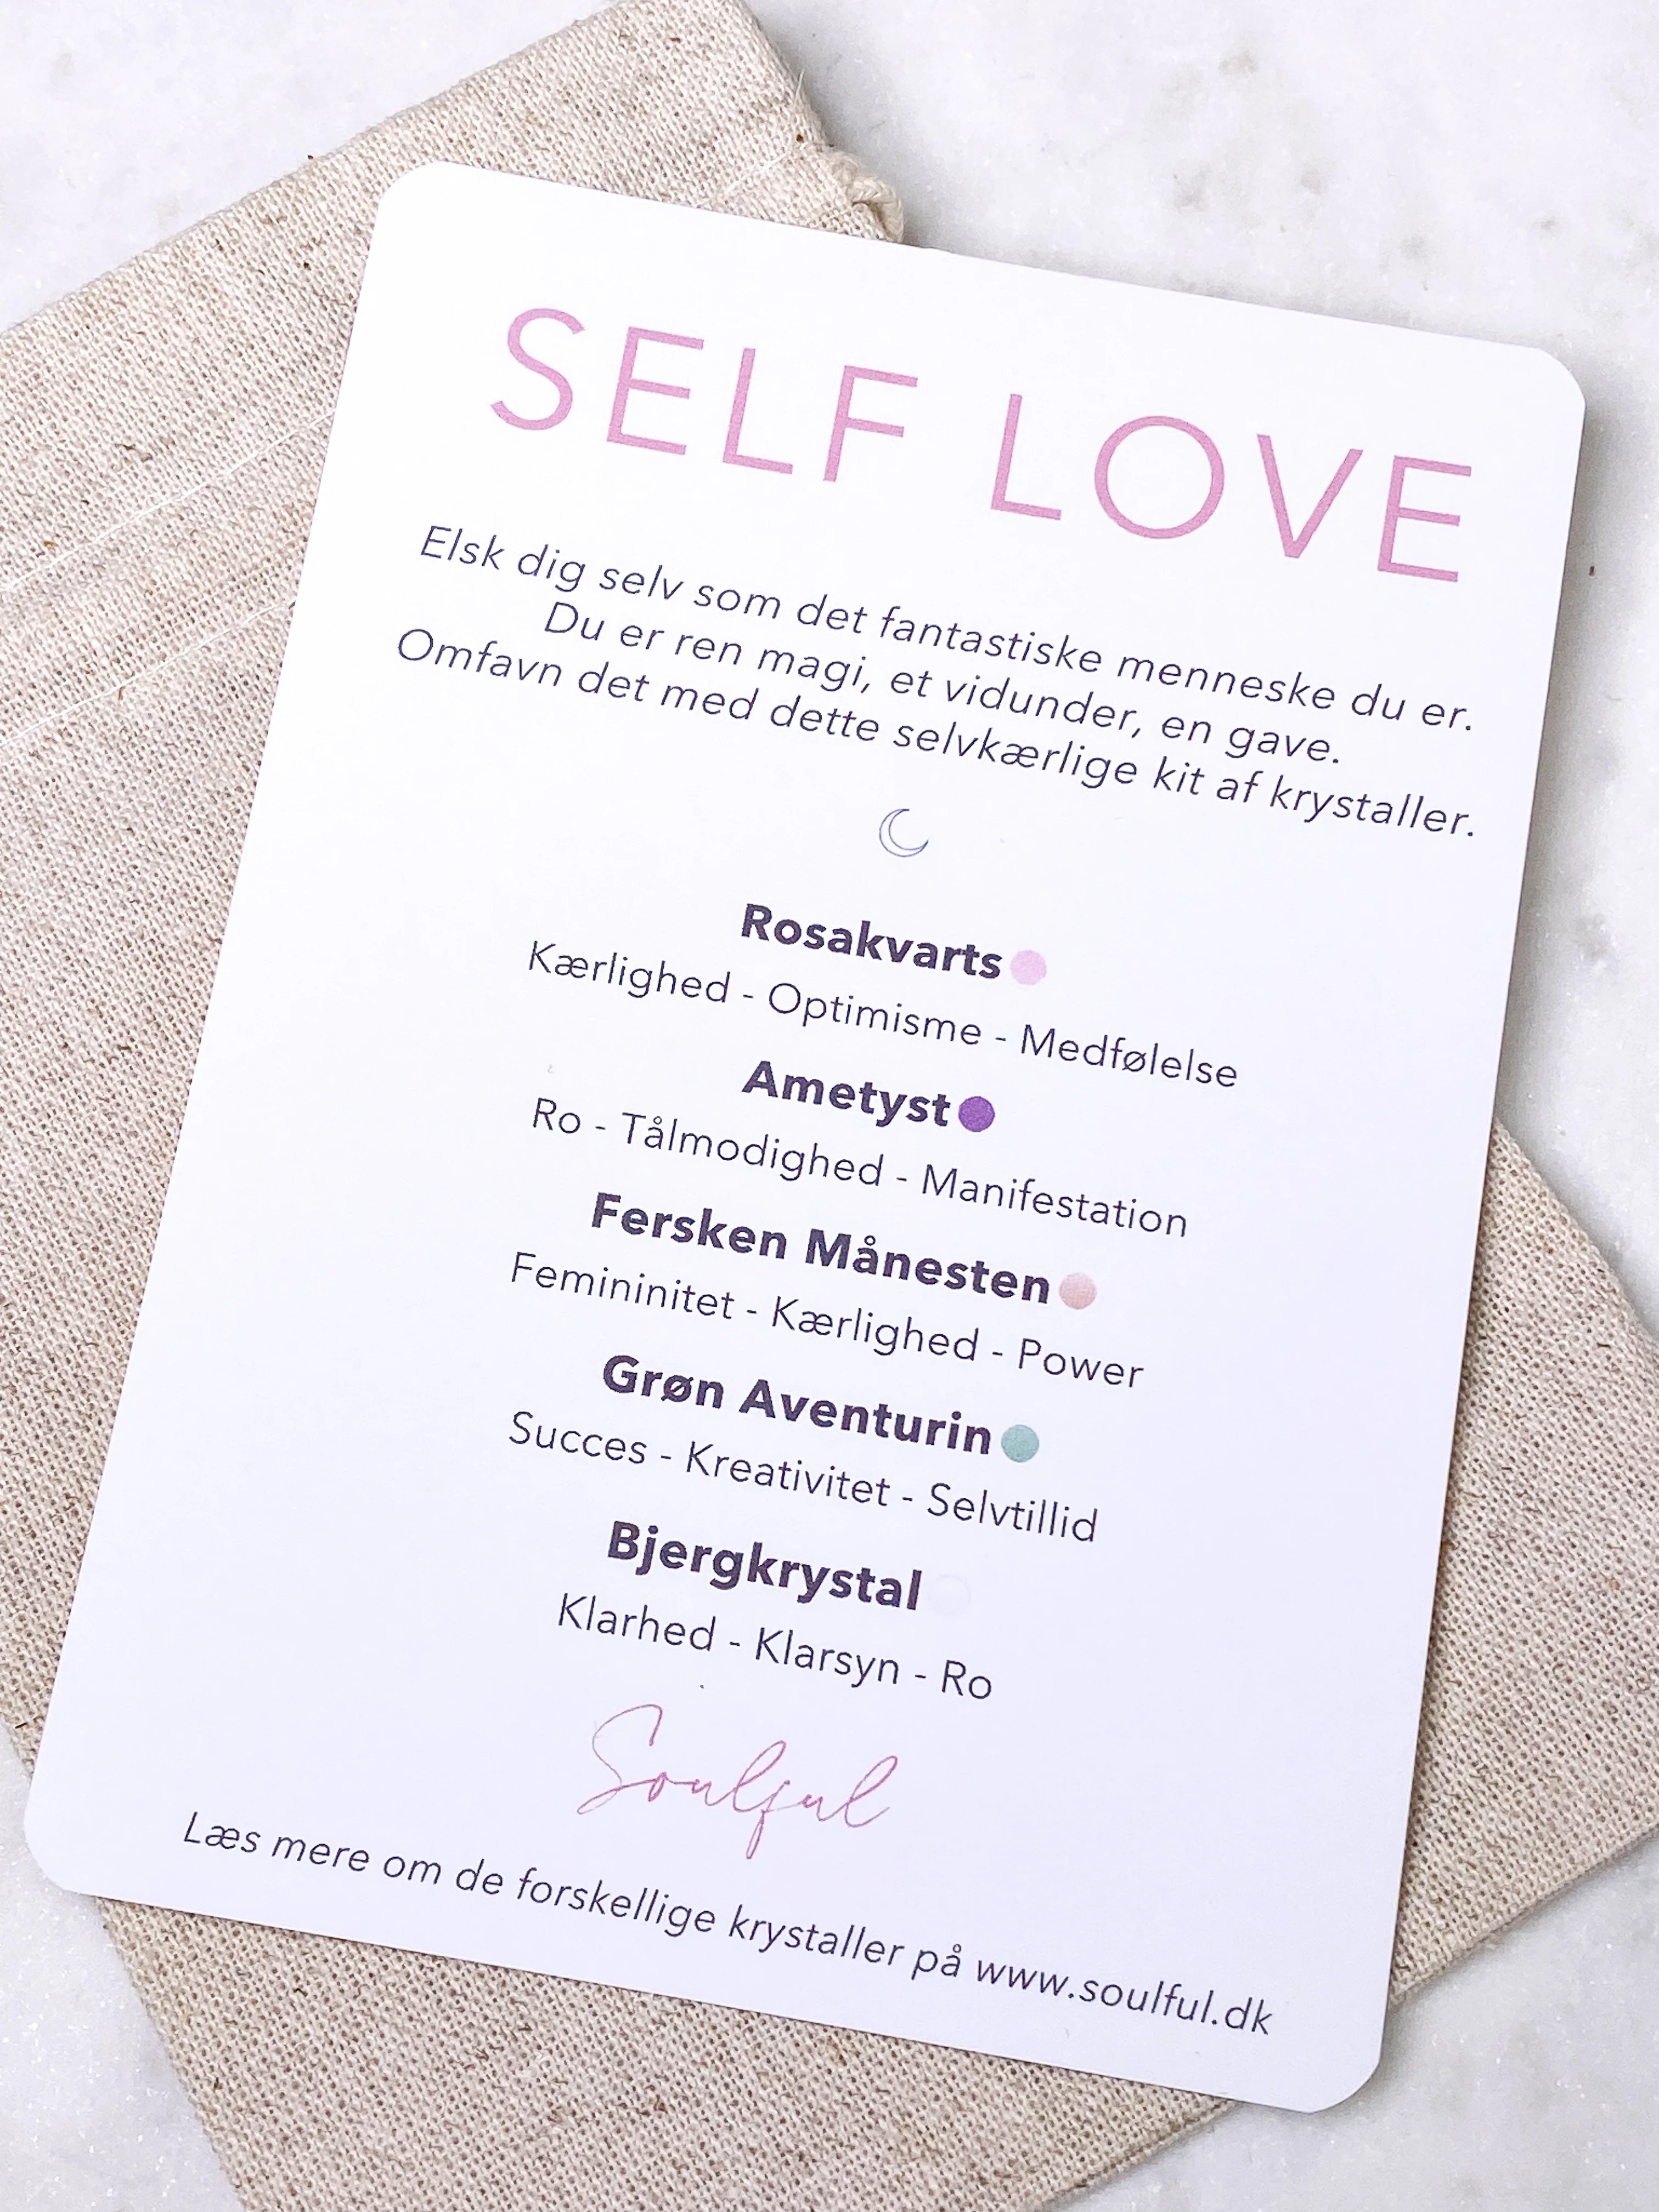 SELF LOVE
Elsk dig selv som det fantastiske menneske du er.
Du er ren magi, et vidunder, en gave.
Omfavn det med dette selvkærlige kit af krystaller.
Rosakvarts
Kærlighed - Optimisme - Medfølelse
Ametyst
Ro - Tålmodighed - Manifestation
Fersken Månesten
Femininitet - Kærlighed - Power
Grøn Aventurin
Succes - Kreativitet - Selvtillid
Bjergkrystal
Klarhed - Klarsyn - Ro
Soulful
Læs mere om de forskellige krystaller på www.soulful.dk